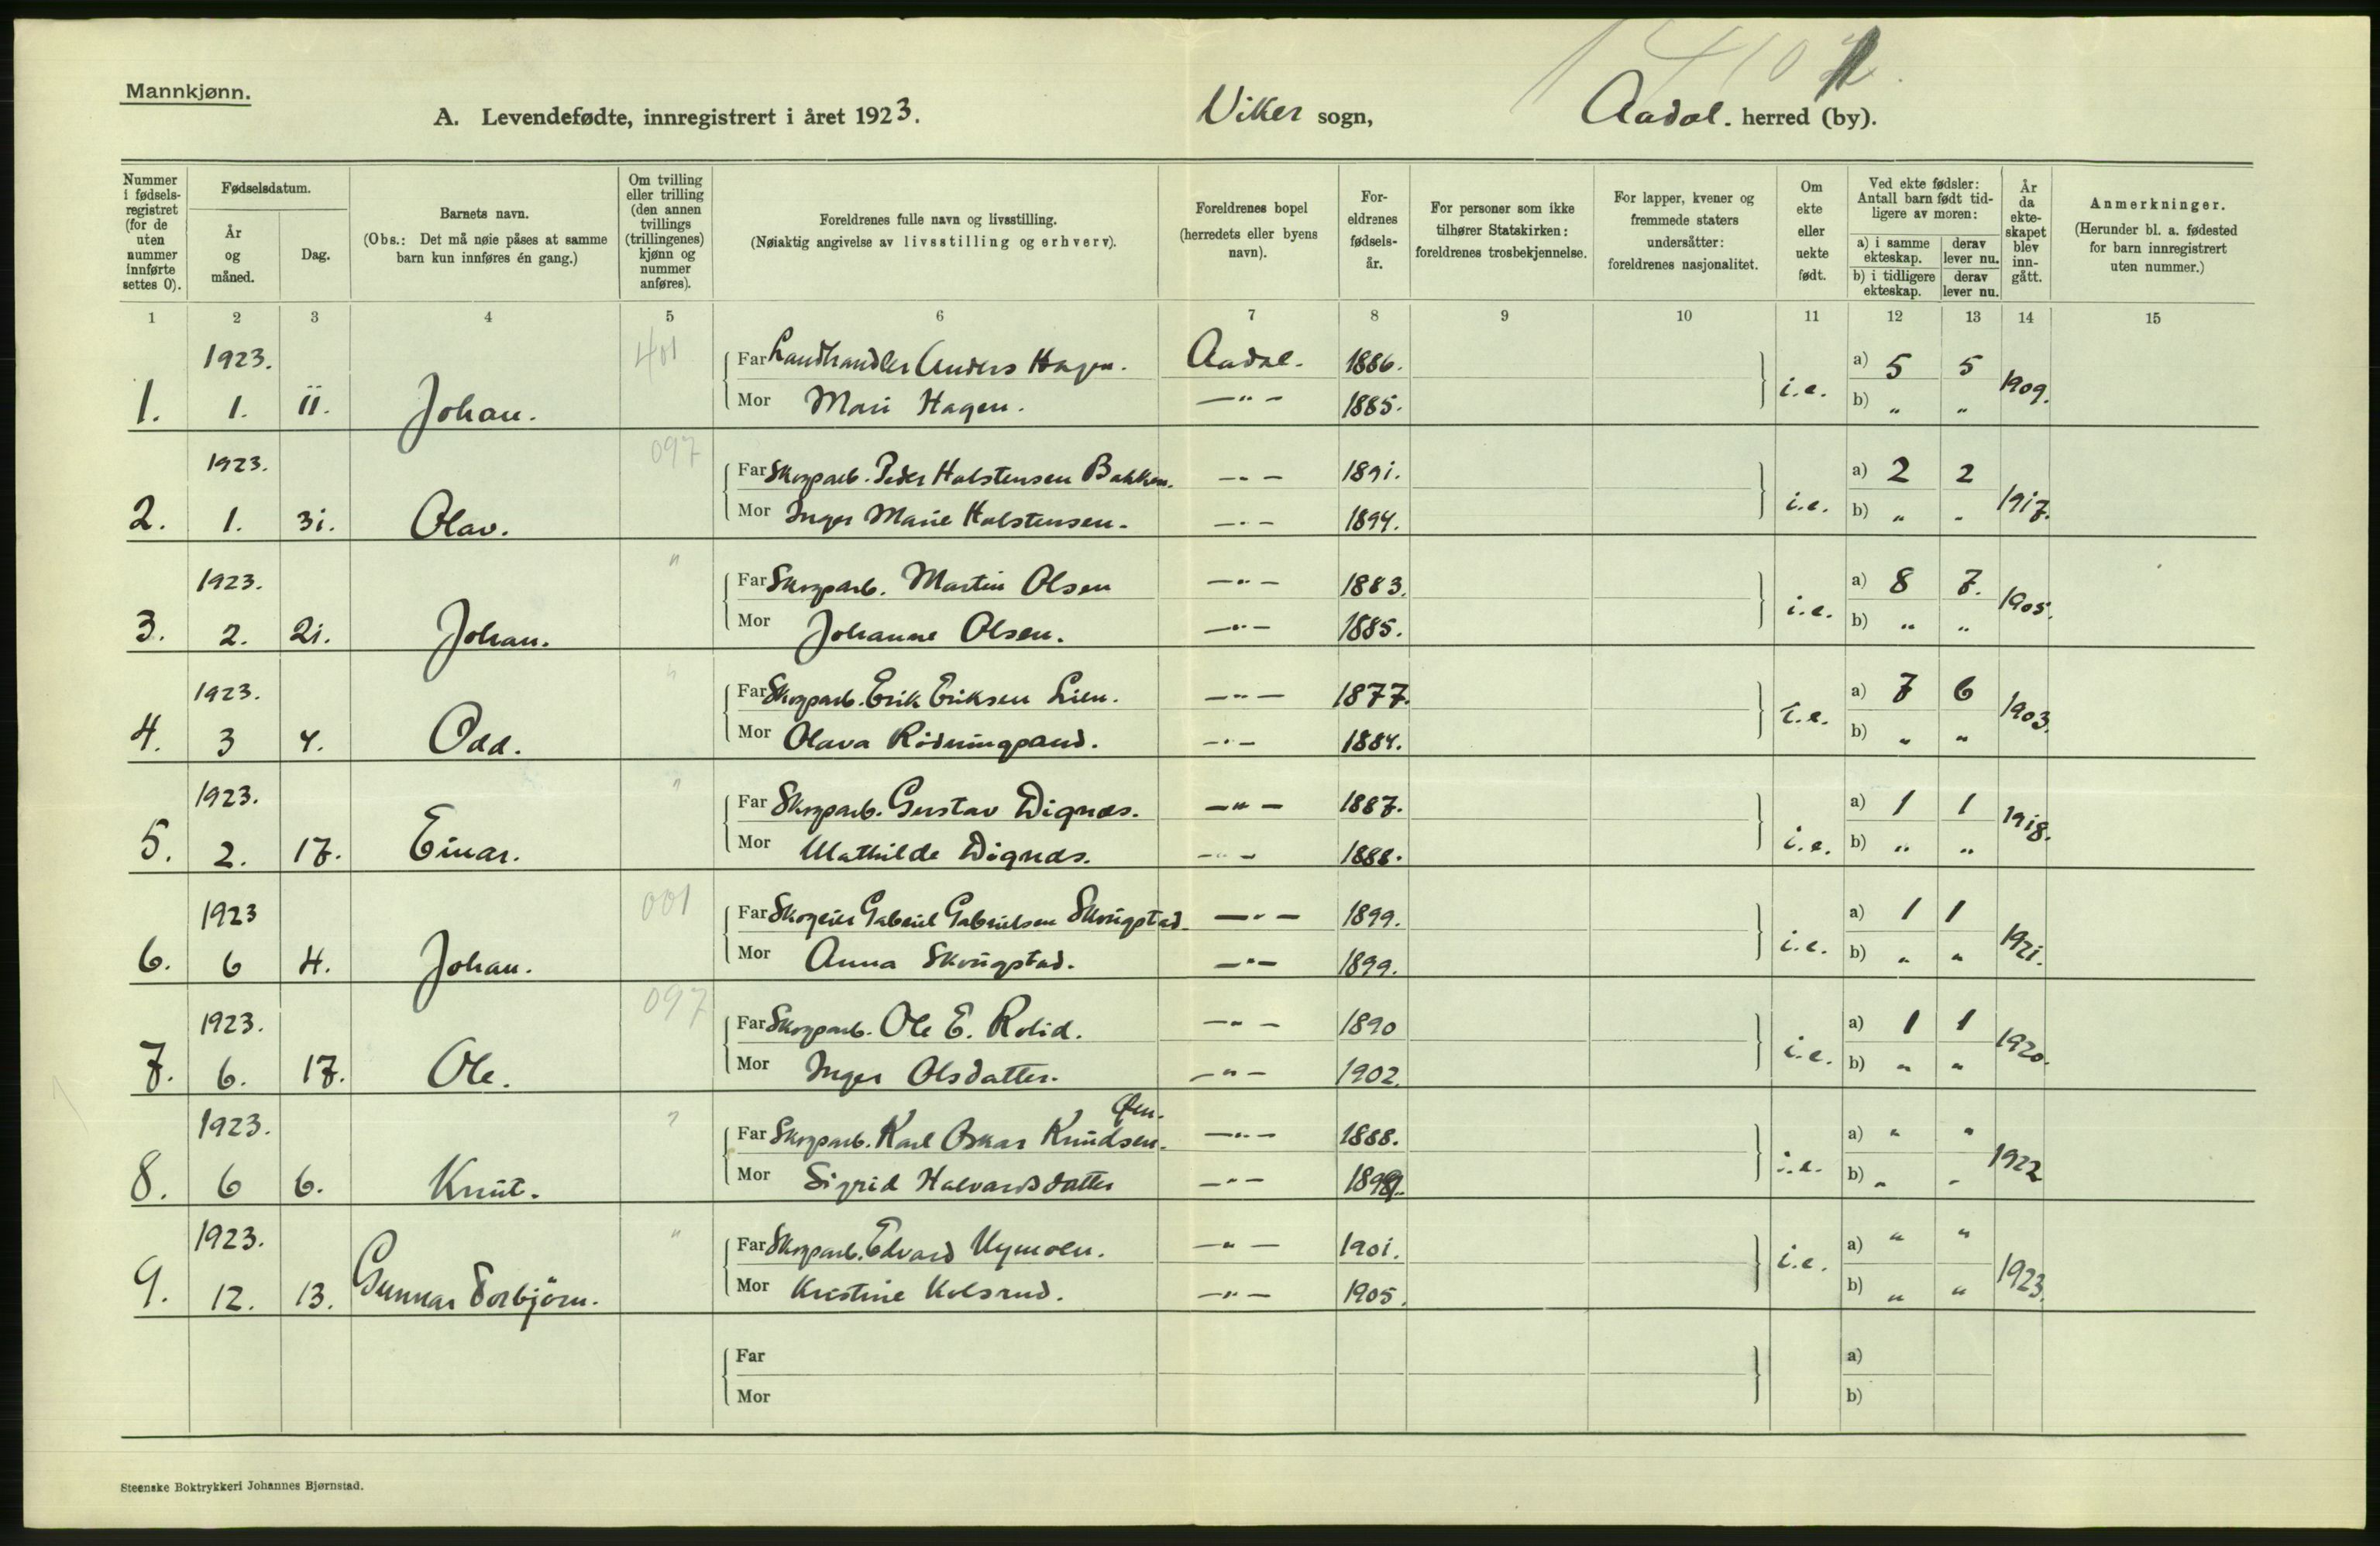 Mannkjønn.
A. Levendefødte, innregistrert i året 1923.
Viker sogn,
Aadal. herred (by).
Nummer i fødsels-registret (for de uten nummer innførte settes 0).
Fødselsdatum.
År og måned.
Dag.
Barnets navn.
(Obs.: Det må nøie påses at samme barn kun innføres én gang.)
Om tvilling eller trilling (den annen tvillings (trillingenes) kjønn og nummer anføres).
Foreldrenes fulle navn og livsstilling.
(Nøiaktig angivelse av livsstilling og erhverv).
Foreldrenes bopel (herredets eller byens navn).
For-eldrenes fødsels-år.
For personer som ikke tilhører Statskirken: foreldrenes trosbekjennelse.
For lapper, kvener og fremmede staters undersåtter: foreldrenes nasjonalitet.
Om ekte eller uekte født.
Ved ekte fødsler: Antall barn født tid-ligere av moren:
a) i samme ekteskap.
derav lever nu.
b) i tidligere ekteskap.
derav lever nu.
År da ekte-skapet blev inn-gått.
Anmerkninger.
(Herunder bl. a. fødested for barn innregistrert uten nummer.)
1 2 3 4 5 6 7 8 9 10 11 12 13 14 15
1923. 401 Far Landhandler Anders Hagen. Aadal. 1886. a) 5 5
1. 1. 11. Johan. Mor Mari Hagen. —"— 1885. i.e. b) " " 1909.
1923. 097 Far Skogarb. Peder Halstensen Bakken. —"— 1891. a) 2 2
2. 1. 31. Olav. Mor Inger Marie Halstensen. —"— 1894. i.e. b) " " 1917.
1923. " Far Skogarb. Martin Olsen —"— 1883. a) 8 7.
3. 2. 21. Johan. Mor Johanne Olsen. —"— 1885. i.e. b) " " 1905.
1923. " Far Skogarb. Erik Eriksen Lien. —"— 1877. a) 7 6
4. 3 4. Odd. Mor Olava —"— 1884. i.e. b) " " 1903.
1923. " Far Skogarb. Gustav Dignæs. —"— 1887. a) 1 1
5. 2. 17. Einar. Mor Mathilde Dignæs. —"— 1888. i.e. b) " " 1918.
1923 001 Far Skogeier Gabriel Gabrielsen Skougstad. —"— 1899. a) 1 1
6. 6 4. Johan. Mor Anna Skougstad. —"— 1899. i.e. b) " " 1921.
1923. 097 Far Skogarb. Ole E. Rolid. —"— 1890 a) 1 1
7. 6. 17. Ole. Mor Inger Olsdatter. —"— 1902. i.e. b) " " 1920.
Øen.
1923. " Far Skogarb. Karl Oskar Knudsen. —"— 1888. a) " "
8. 6 6. Knut. Mor Sigrid Halvardsdatter —"— i.e. b) " " 1922
1923. " Far Skogarb. Edvard Nymoen. —"— 1901. a) " "
9. 12. 13. Gunnar Torbjörn. Mor Kristine Kolsrud. —"— 1905. i.e. b) " " 1923.
Far a)
Mor b)
Steenske Boktrykkeri Johannes Bjørnstad.